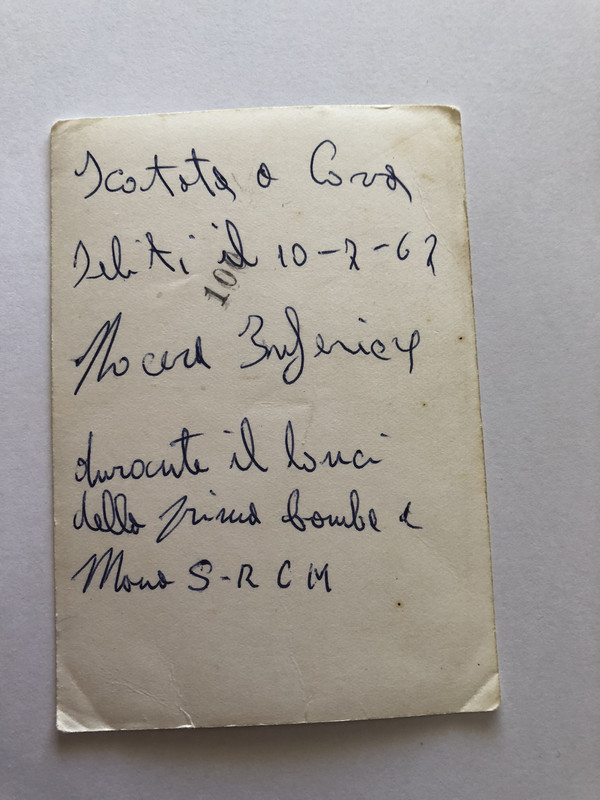 Scatata a Cava
Teliti il 10-7-67
100
Nocera Inferiore
durante il lanci
della prima bombe a
Mano S-R C M